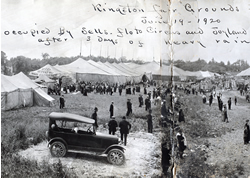 Kingston Fair Grounds
June 19 - 1920
occupied by Sells. Floto Circus and
after 3 Days of heavy rain